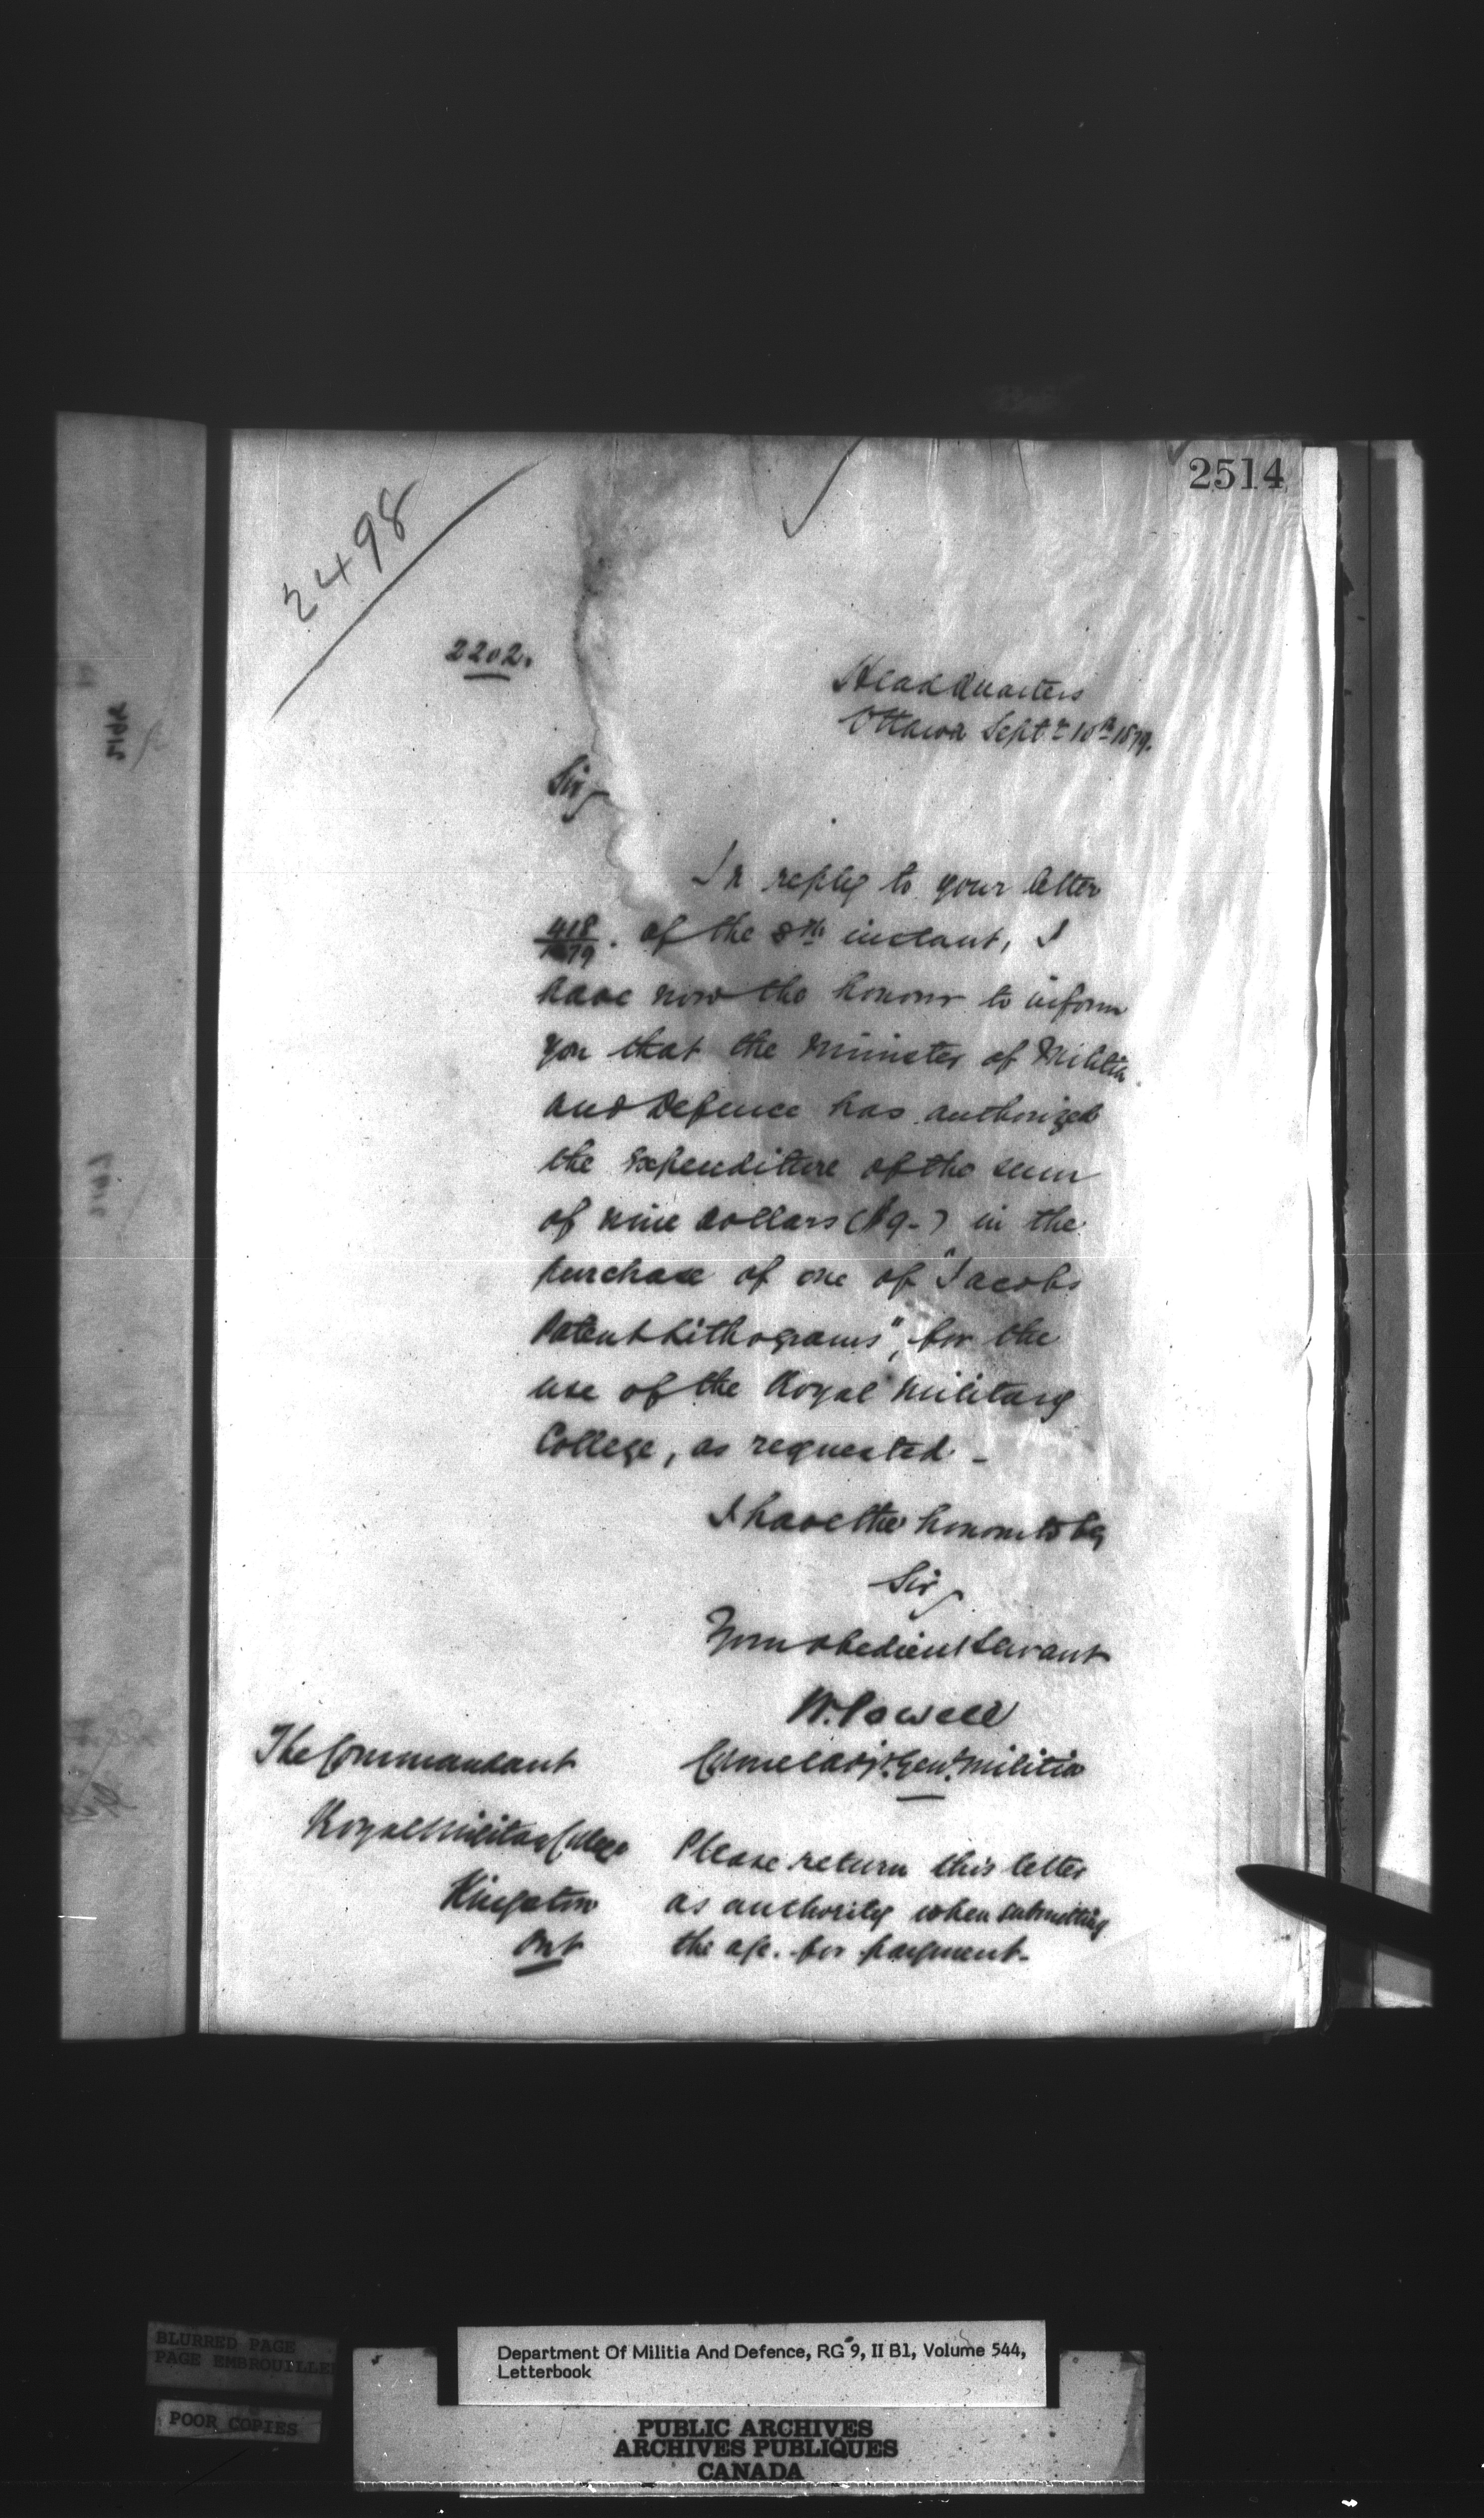 2514
2498
2202.
Head Quarters
Ottawa Septr 10th 1879.
Sir,
In reply to your letter
418/1879. of the 8th instant, I
have now the honour to inform
you that the Minister of Militia
and Defence has authorized
the expenditure of the sum
of nine dollars ($9-) in the
purchase of one of "Jacobs
Patent Lithograms", for the
use of the Royal Military
College, as requested -
I have the honour to be,
Sir,
Your obedient Servant
W. Powell
Colonel Adjt. Genl. Militia
The Commandant
Royal Military College
Kingston
Ont
Please return this letter
as authority when submitting
the a/c. for payment.
BLURRED PAGE
PAGE EMBROUILLEE
POOR COPIES
Department Of Militia And Defence, RG 9, II B1, Volume 544,
Letterbook
PUBLIC ARCHIVES
ARCHIVES PUBLIQUES
CANADA